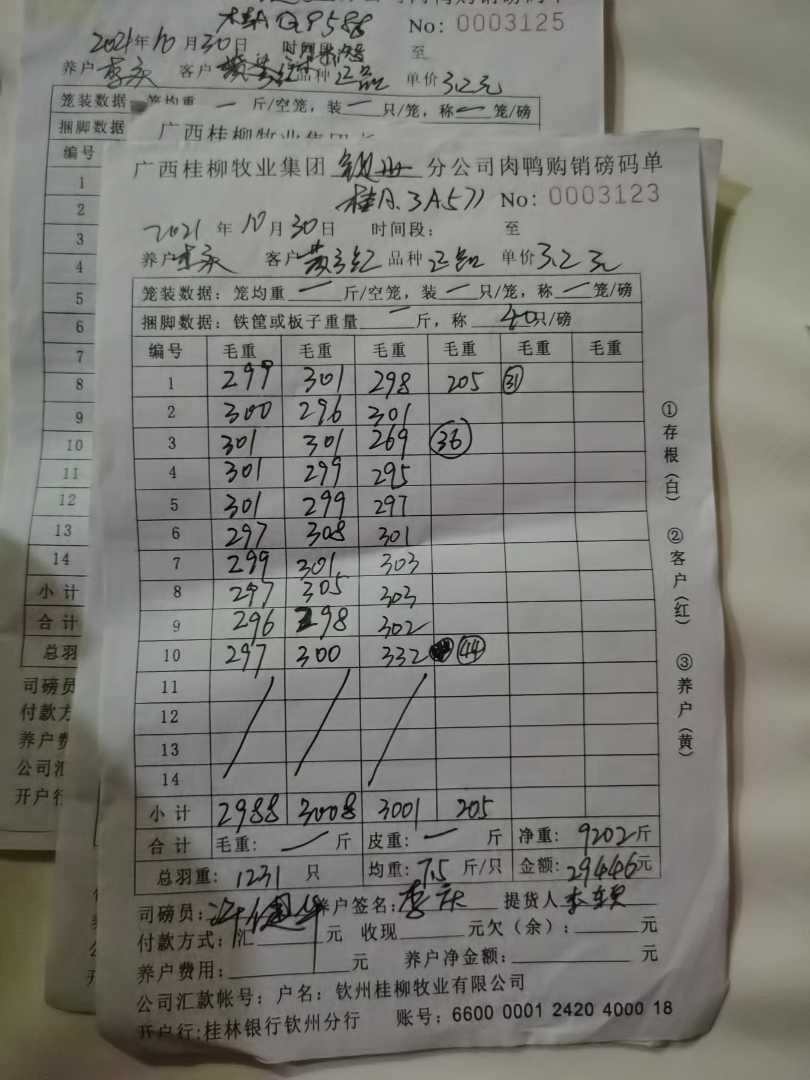 桂A Q9588
No: 0003125
2021年10月30日 时间段 至
养户 李庆 客户 品种正品 单价3.2元
笼装数据 笼均重一斤/空笼，装一只/笼，称一笼/磅
捆脚数据
编号
1
2
3
4
5
6
7
8
9
10
11
12
13
14
小计
合计
总羽
司磅员
付款方
养户费
公司汇
开户行
广西桂柳牧业集团
广西桂柳牧业集团 钦州 分公司肉鸭购销磅码单
桂A.3A571 No: 0003123
2021年10月30日 时间段： 至
养户李庆 客户 品种正品 单价3.2元
笼装数据：笼均重一斤/空笼，装一只/笼，称一笼/磅
捆脚数据：铁筐或板子重量一斤，称40只/磅
编号 毛重 毛重 毛重 毛重 毛重 毛重
1 299 301 298 205 31
2 300 296 301
3 301 301 269 36
4 301 299 295
5 301 299 297
6 297 308 301
7 299 301 303
8 297 305 303
9 296 298 302
10 297 300 332 44
11
12
13
14
小计 2988 3008 3001 205
合计 毛重：一斤 皮重：一斤 净重：9202斤
总羽重：1231只 均重：7.5斤/只 金额：29446元
司磅员： 养户签名：李庆 提货人
付款方式：汇 元 收现 元欠（余）： 元
养户费用： 元 养户净金额： 元
公司汇款帐号：户名：钦州桂柳牧业有限公司
开户行:桂林银行钦州分行 账号：6600 0001 2420 4000 18
①存根（白） ②客户（红） ③养户（黄）